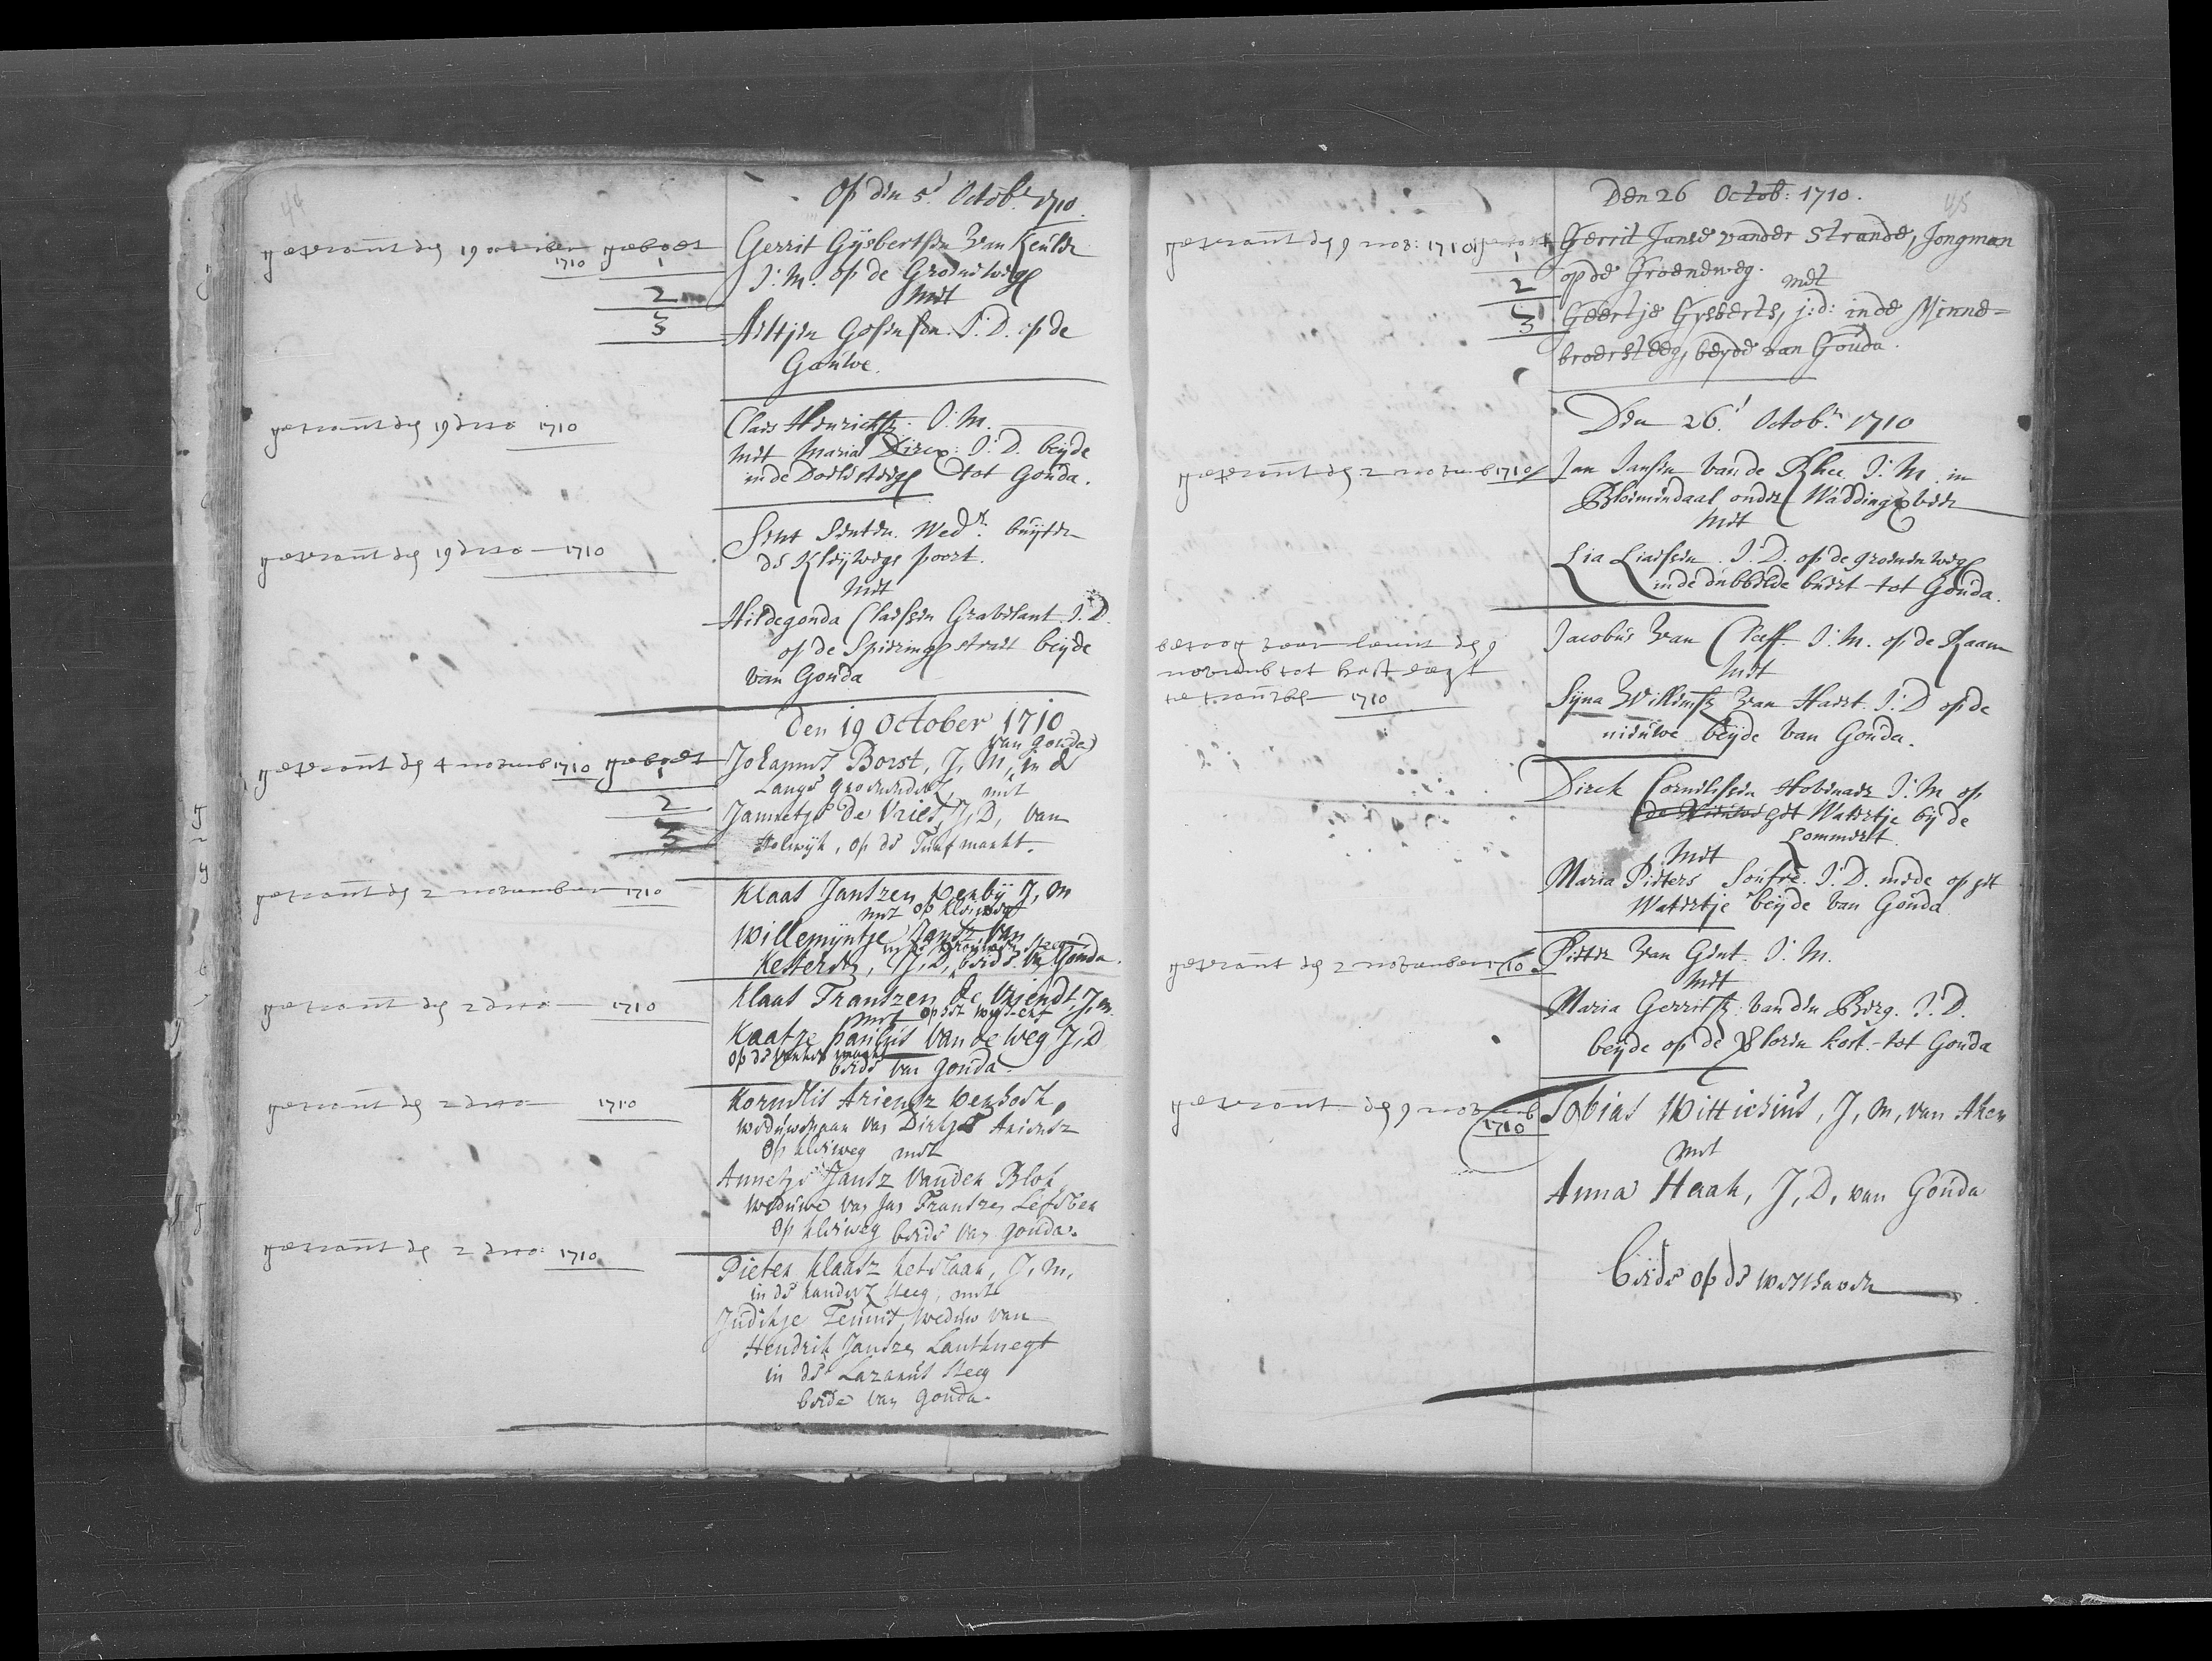 44
op den 5.' Octob.r 1710.
getrout den 19 october geboet
1710
1
2
3
Gerrit Gijsbertsen van Keulen
J: M. op de Groenewegh
met
Aeltjen Gosensen. J: D. op de
Gouwe.
getrout den 19 detto 1710
Claes Henricksz. J: M.
met Maria Dircx: J: D. beyde
in de Doelesteegh tot Gouda.
getrout den 19 detto 1710
Sent Senten. Wed.r buyten
de Kleywegs poort.
met
Hildegonda Claessen Gravelant J: D.
op de Spieringhstraet beyde
van Gouda
Den 19 October 1710
getrout den 4 novemb 1710 geboet
1
2
3
van gouda
Johannes Borst, J, M, in de
Lange Groenendal, met
Jannetje De Vries, J, D, van
Stolwijk, op de Turfmarkt.
getrout den 2 november 1710
Klaas Jantzen J, M
met op kleiweg
Willemijntje Jansz van
Gouda.
getrout den 2 detto 1710
Klaas Frantzen de Vriendt, J, m.
met
Kaatje Paulus van de Weg J, D
beide van Gouda.
getrout den 2 detto 1710
Kornelis Ariensz
weduwenaar van Dirkje Ariensz
op kleiweg met
Annetje Jansz vanden Blok,
weduwe van Jan Frantzen
op kleiweg beide van gouda.
getrout den 2 detto: 1710
Pieter Klaasz J, M,
in de steeg, met
Judikje Teunis, weduw van
Hendrik Jantzen Lantknegt
in de Lazarus steeg
beide van gouda.
45
Den 26 Octob: 1710.
getrout den 9 nov: 1710 geboet
1
2
3
Gerrit Janse vander Strande, Jongman
op de Groeneweg. met
Geertje Gysberts, j: d: in de Minne=
broersteeg, beyde van Gouda.
Den 26.' Octob.r 1710
getrout den 2 novemb 1710
Jan Jansen van de Rhee J: M. in
Bloemendaal onder Waddingxveen
met
Lia Liaessen. J: D. op de groenewegh
in de dubbelde buert tot Gouda.
novemb tot
te trouwen 1710
Jacobus van Cleeff. J: M. op de Raam
met
Syna Willemsz van Haert. J: D op de
nieuwe beyde van Gouda.
Dirck Cornelissen Hovenaer J: M op
de Nieuwe het Watertje by de
Lommert.
met
Maria Pieters J: D. mede op het
Watertje beyde van Gouda
getrout den 2 november 1710
Pieter van Gent. J: M.
met
Maria Gerritsz. van den Berg. J: D.
beyde op de Verloren kost. tot Gouda
getrout den 9 novemb
1710
Tobias Wittichius, J, M, van Aken
met
Anna Haak, J, D, van Gouda
beide op de westhaven